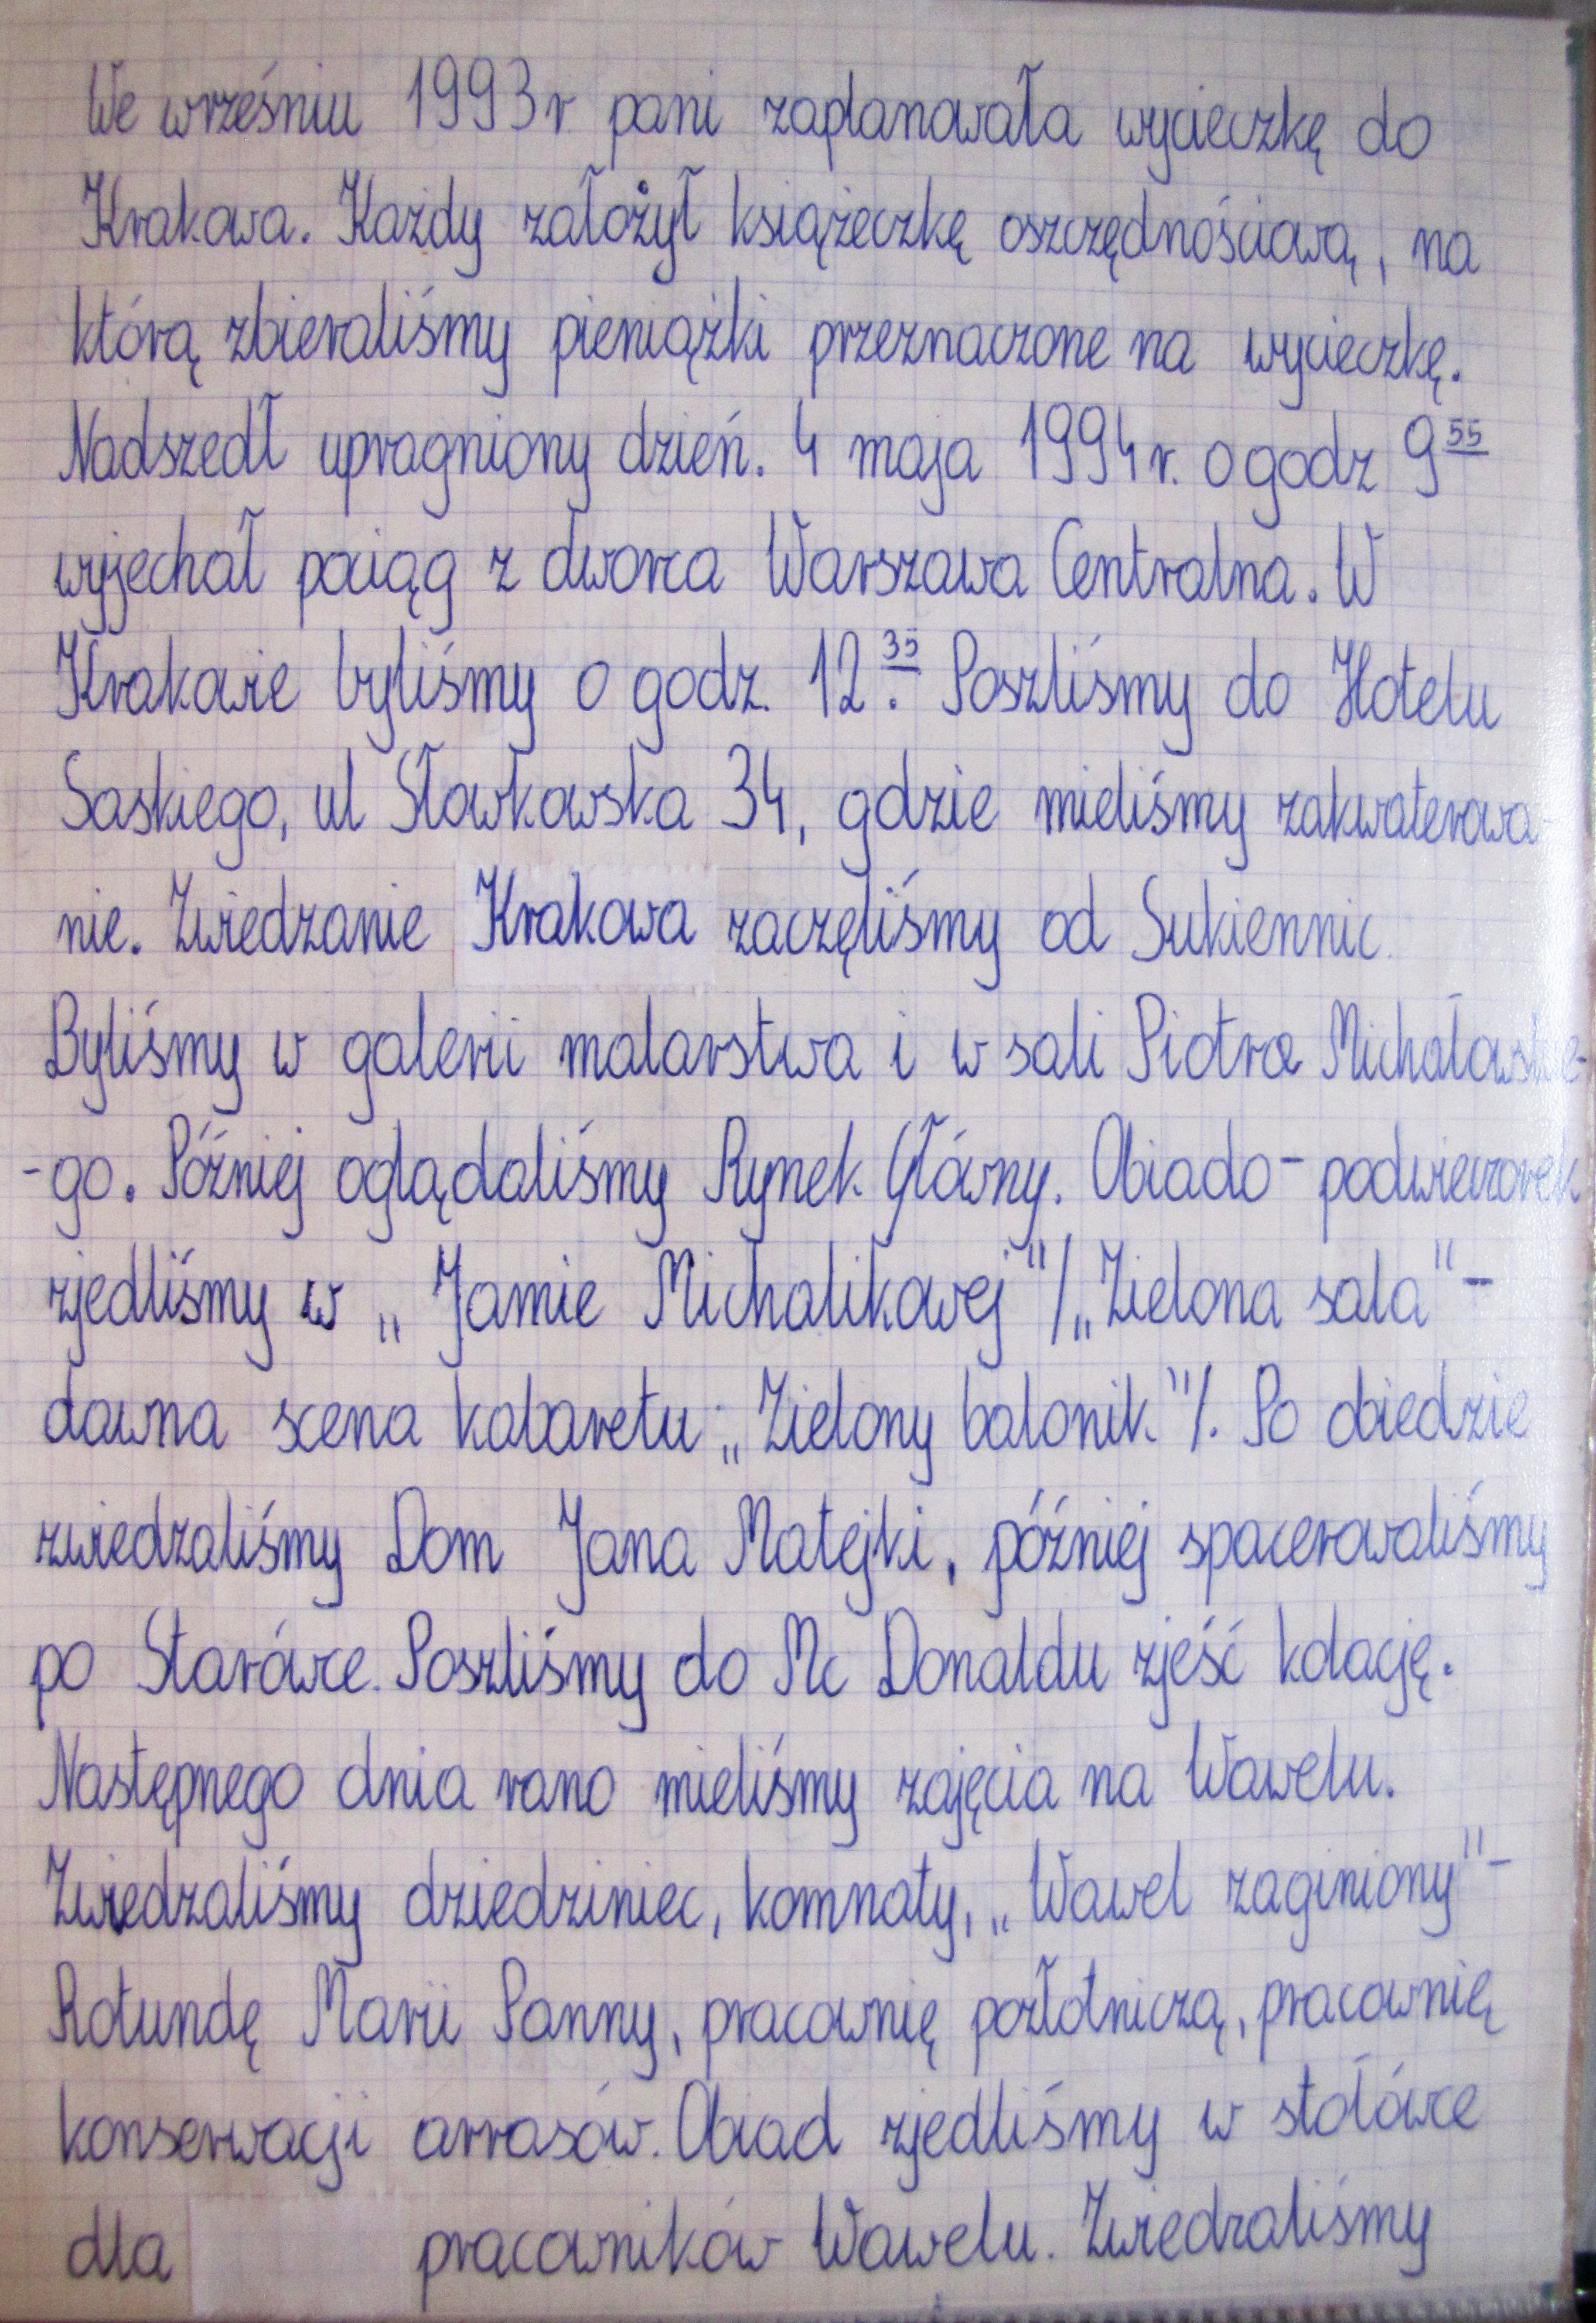 We wrześniu 1993r pani zaplanowała wycieczkę do
Krakowa. Każdy założył książeczkę oszczędnościową, na
którą zbieraliśmy pieniążki przeznaczone na wycieczkę.
Nadszedł upragniony dzień. 4 maja 1994r. o godz 9⁵⁵
wyjechał pociąg z dworca Warszawa Centralna. W
Krakowie byliśmy o godz. 12³⁵. Poszliśmy do Hotelu
Saskiego, ul Sławkowska 34, gdzie mieliśmy zakwaterowa-
nie. Zwiedzanie Krakowa zaczęliśmy od Sukiennic.
Byliśmy w galerii malarstwa i w sali Piotra Michałowskie-
-go. Później oglądaliśmy Rynek Główny. Obiado-podwieczorek
zjedliśmy w „Jamie Michalikowej"/„Zielona sala"-
dawna scena kabaretu „Zielony balonik"/. Po obiedzie
zwiedzaliśmy Dom Jana Matejki, później spacerowaliśmy
po Starówce. Poszliśmy do Mc Donaldu zjeść kolację.
Następnego dnia rano mieliśmy zajęcia na Wawelu.
Zwiedzaliśmy dziedziniec, komnaty, „Wawel zaginiony"-
Rotundę Marii Panny, pracownię pozłotniczą, pracownię
konserwacji arrasów. Obiad zjedliśmy w stołówce
dla pracowników Wawelu. Zwiedzaliśmy